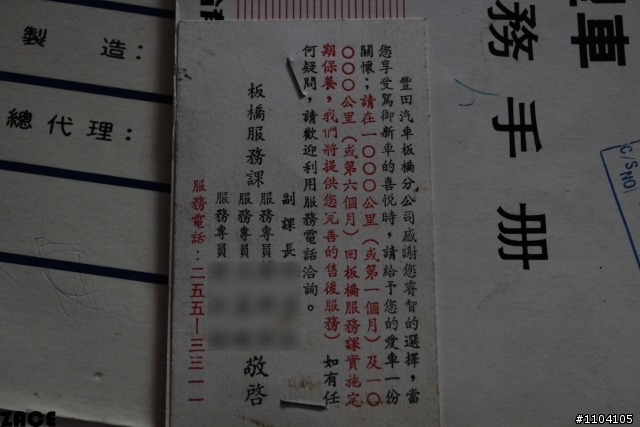 製造:
總代理:
豐田汽車板橋分公司感謝您睿智的選擇,當
您享受駕御新車的喜悅時,請給予您的愛車一份
關懷;請在一〇〇〇公里(或第一個月)及一〇
〇〇〇公里(或第六個月)回板橋服務課實施定
期保養,我們將提供您完善的售後服務)如有任
何疑問,請歡迎利用服務電話洽詢。
板橋服務課
副課長
服務專員
服務專員
服務專員
敬啓
服務電話:二五五一三三一一
車
務手册
C/SNO1
ZACE
#1104105